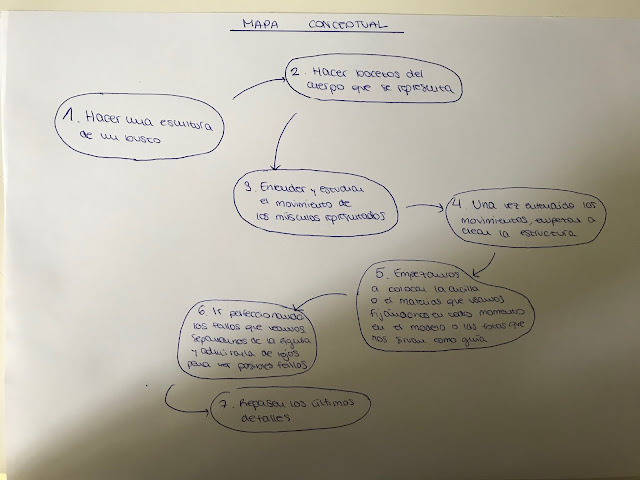 MAPA CONCEPTUAL
1. Hacer una escultura
de un busto
2. Hacer bocetos del
cuerpo que se representa
3. Entender y estudiar
el movimiento de
los músculos representados
4. Una vez entendido los
movimientos, empezar a
crear la estructura
5. Empezamos
a colocar la arcilla
o el material que usamos
fijandonos en todo momento
en el modelo o las fotos que
nos sirvan como guía
6. Ir perfeccionando
los fallos que veamos
separarnos de la figura
y admirarla de lejos
para ver posibles fallos
7. Repasar los últimos
detalles